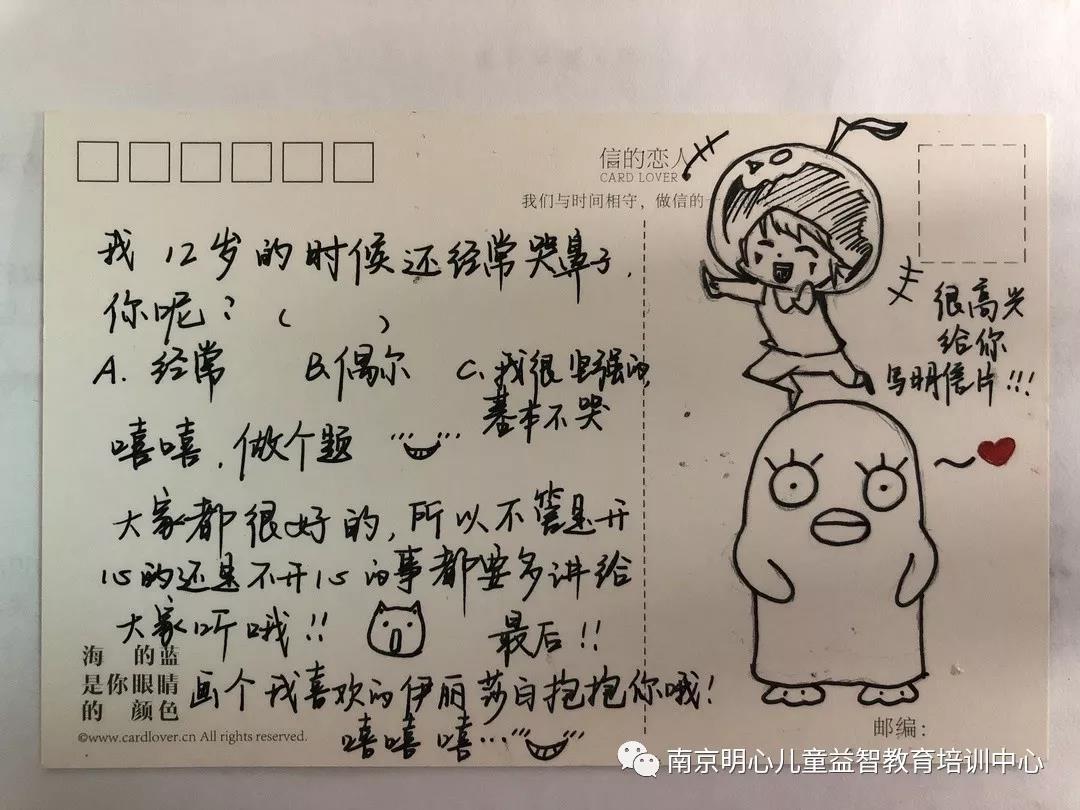 信的恋人
CARD LOVER
我们与时间相守，做信的
我12岁的时候还经常哭鼻子，
你呢？（ ）
A. 经常 B.偶尔 C.我很坚强的，
基本不哭
嘻嘻，做个题
大家都很好的，所以不管是开
心的还是不开心的事都要多讲给
大家听哦！！
最后！！
画个我喜欢的伊丽莎白抱抱你哦！
嘻嘻嘻…
很高兴
给你
写明信片！！！
海 的蓝
是你眼睛
的 颜色
©www.cardlover.cn All rights reserved.
邮编：
南京明心儿童益智教育培训中心